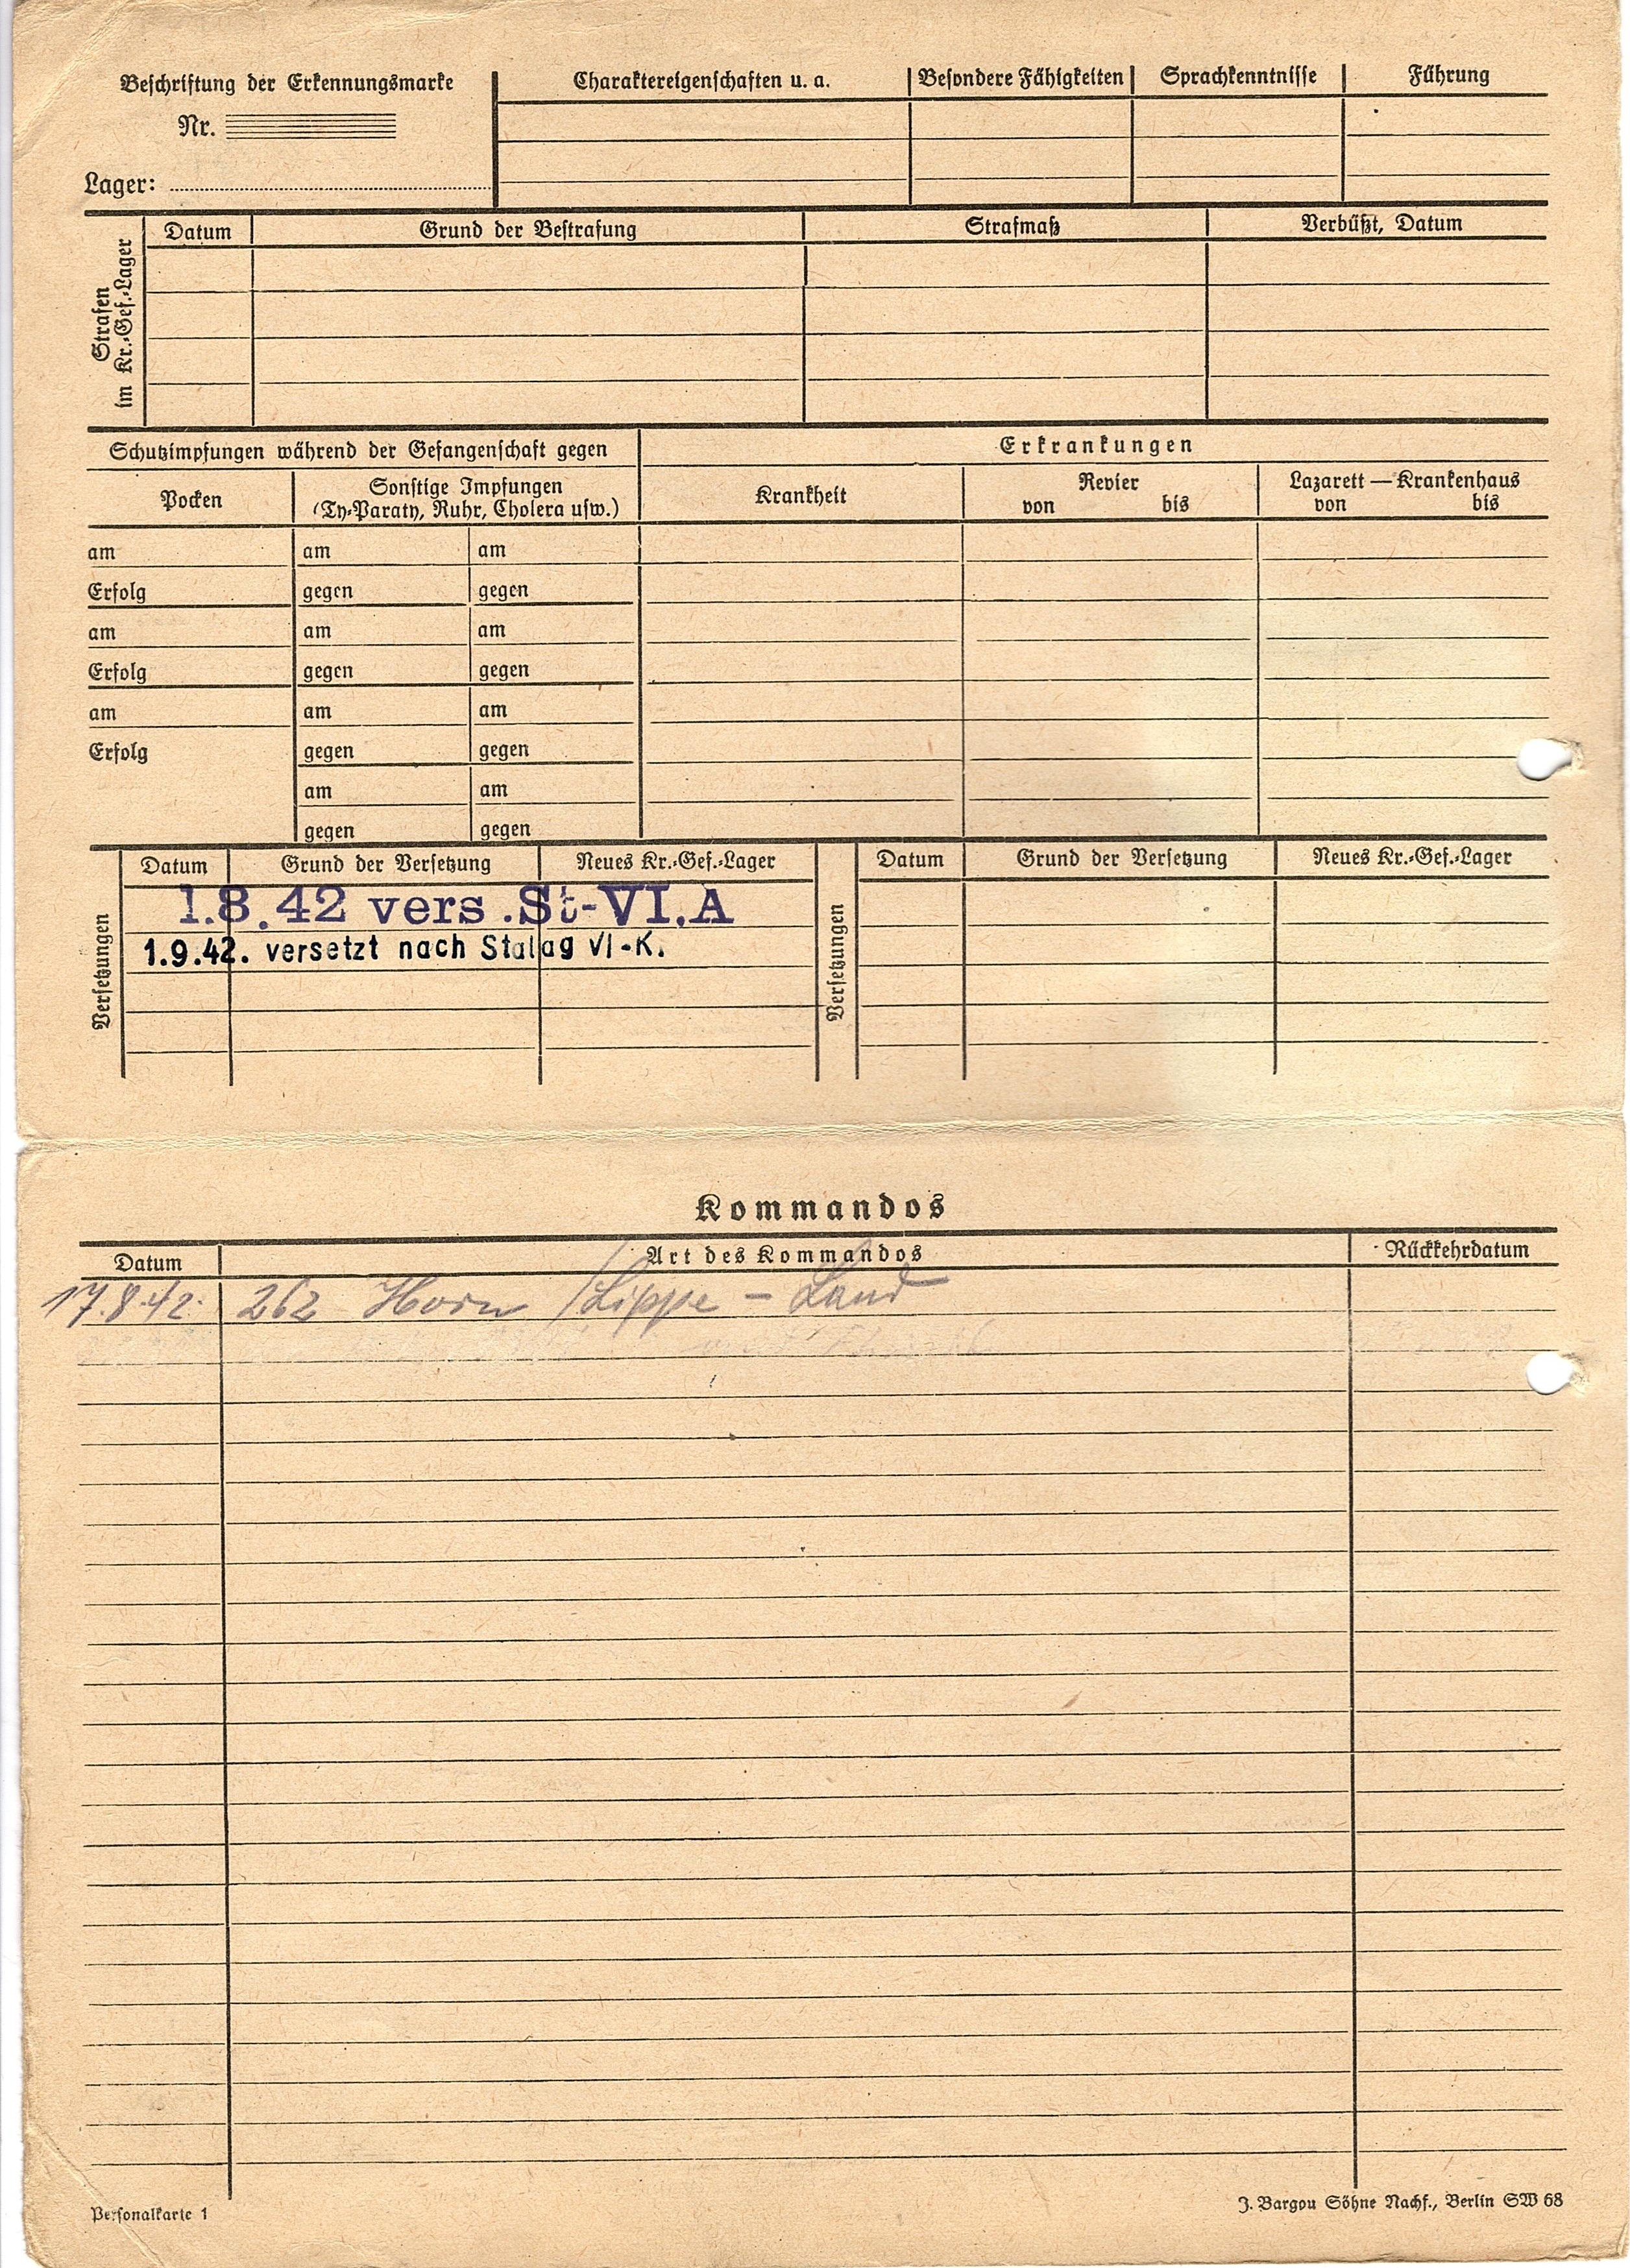 Beschriftung der Erkennungsmarke
Nr.
Lager:
Charaktereigenschaften u. a.
Besondere Fähigkeiten
Sprachkenntnisse
Führung
Strafen
im Kr.-Gef.-Lager
Datum
Grund der Bestrafung
Strafmaß
Verbüßt, Datum
Schutzimpfungen während der Gefangenschaft gegen
Erkrankungen
Pocken
Sonstige Impfungen
(Ty-Paraty, Ruhr, Cholera usw.)
Krankheit
Revier
von bis
Lazarett — Krankenhaus
von bis
am am am
Erfolg gegen gegen
am am am
Erfolg gegen gegen
am am am
Erfolg gegen gegen
am am
gegen gegen
Versetzungen
Datum Grund der Versetzung Neues Kr.-Gef.-Lager
1.8.42 vers. St-VI.A
1.9.42. versetzt nach Stalag VI-K.
Versetzungen
Datum Grund der Versetzung Neues Kr.-Gef.-Lager
Kommandos
Datum Art des Kommandos Rückkehrdatum
17.8.42. 262 Horn /Lippe - Land
Personalkarte 1
J. Bargou Söhne Nachf., Berlin SW 68